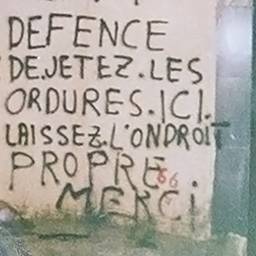 DEFENCE
DE.JETEZ.LES
ORDURES.ICI.
LAISSEZ.L'ONDROIT
PROPRE
66
MERCi